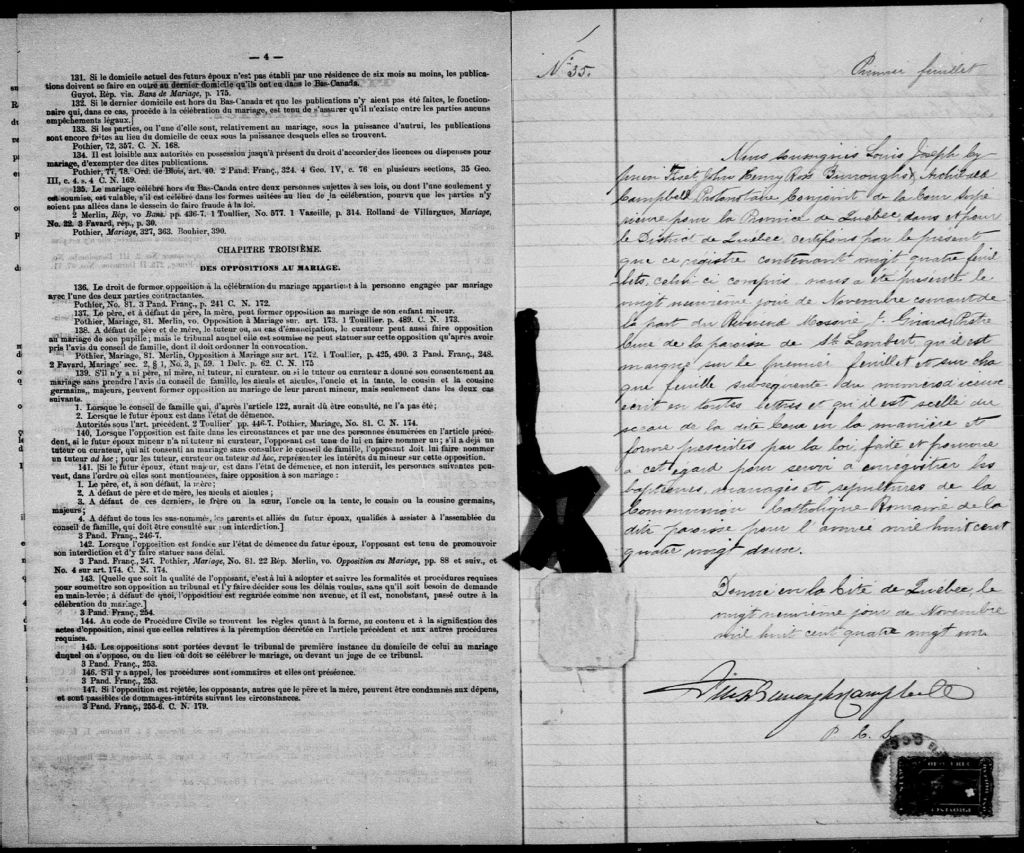 — 4 —
131. Si le domicile actuel des futurs époux n'est pas établi par une résidence de six mois au moins, les publica-
tions doivent se faire en outre au dernier domicile qu'ils ont eu dans le Bas-Canada.
Guyot, Rép. vis. Bans de Mariage, p. 175.
132. Si le dernier domicile est hors du Bas-Canada et que les publications n'y aient pas été faites, le fonction-
naire qui, dans ce cas, procède à la célébration du mariage, est tenu de s'assurer qu'il n'existe entre les parties aucuns
empêchements légaux.]
133. Si les parties, ou l'une d'elle sont, relativement au mariage, sous la puissance d'autrui, les publications
sont encore faites au lieu du domicile de ceux sous la puissance desquels elles se trouvent.
Pothier, 72, 357. C. N. 168.
134. Il est loisible aux autorités en possession jusqu'à présent du droit d'accorder des licences ou dispenses pour
mariage, d'exempter des dites publications.
Pothier, 77, 78. Ord. de Blois, art. 40. 2 Pand. Franç., 324. 4 Geo. IV, c. 76 en plusieurs sections, 35 Geo.
III, c. 4. s. 4 C. N. 169.
135. Le mariage célébré hors du Bas-Canda entre deux personnes sujettes à ses lois, ou dont l'une seulement y
est soumise, est valable, s'il est célébré dans les formes usitées au lieu de la célébration, pourvu que les parties n'y
soient pas allées dans le dessein de faire fraude à la loi.
2 Merlin, Rép, vo Bans. pp. 436-7, 1 Toullier, No. 577. 1 Vazeille, p. 314. Rolland de Villargues, Mariage,
No. 22. 3 Favard, rép., p. 30.
Pothier, Mariage, 327, 363. Bouhier, 390.
CHAPITRE TROISIÈME.
DES OPPOSITIONS AU MARIAGE.
136. Le droit de former opposition à la célébration du mariage appartient à la personne engagée par mariage
avec l'une des deux parties contractantes.
Pothier, No. 81. 3 Pand. Franç., p. 241 C. N. 172.
137. Le père, et à défaut du père, la mère, peut former opposition au mariage de son enfant mineur.
Pothier, Mariage, 81. Merlin, vo. Opposition à Mariage sur. art. 173. 1 Touillier, p. 489. C. N. 173.
138. A défaut de père et de mère, le tuteur ou, au cas d'émancipation, le curateur peut aussi faire opposition
au mariage de son pupille; mais le tribunal auquel elle est soumise ne peut statuer sur cette opposition qu'après avoir
pris l'avis du conseil de famille, dont il doit ordonner la convocation.
Pothier, Mariage, 81. Merlin, vo. Opposition à Mariage sur art. 172. 1 Toulier, p. 425, 490. 3 Pand. Franç., 248.
2 Favard, Mariage sec. 2, § 1, No. 3, p. 59. 1 Delv. p. 62. C. N. 175
139. S'il n'y a ni père, ni mère, ni tuteur, ni curateur. ou si le tuteur ou curateur a donné son consentement au
mariage sans prendre l'avis du conseil de famille, les aïeuls et aïeules, l'oncle et la tante, le cousin et la cousine
germains, majeurs, peuvent former opposition au mariage de leur parent mineur, mais seulement dans les deux cas
suivants.
1. Lorsque le conseil de famille qui, d'après l'article 122, aurait dû être consulté, ne l'a pas été;
2. Lorsque le futur époux est dans l'état de démence.
Autorités sous l'art. précédent. 2 Toullier pp. 446-7. Pothier, Mariage, No. 81. C. N. 174.
140. Lorsque l'opposition est faite dans les circonstances et par une des personnes énumérées en l'article précé-
dent, si le futur époux mineur n'a ni tuteur ni curateur, l'opposant est tenu de lui en faire nommer un; s'il a déjà un
tuteur ou curateur, qui ait consenti au mariage sans consulter le conseil de famille, l'opposant doit lui faire nommer
un tuteur ad hoc; pour les tuteur, curateur ou tuteur ad hoc, représenter les intérêts du mineur sur cette opposition.
141. [Si le futur époux, étant majeur, est dans l'état de démence, et non interdit, les personnes suivantes peu-
vent, dans l'ordre où elles sont mentionnées, faire opposition à son mariage:
1. Le père, et, à son défaut, la mère;
2. A défaut de père et de mère, les aïeuls et aïeules;
3. A défaut de ces derniers, le frère ou la sœur, l'oncle ou la tente, le cousin ou la cousine germains,
majeurs;
4. A défaut de tous les sus-nommés, les parents et alliés du futur époux, qualifiés à assister à l'assemblée du
conseil de famille, qui doit être consulté sur son interdiction.]
3 Pand. Franç., 246-7.
142. Lorsque l'opposition est fondée sur l'état de démence du futur époux, l'opposant est tenu de promouvoir
son interdiction et d'y faire statuer sans délai.
3 Pand. Franç., 247. Pothier, Mariage, No. 81. 22 Rép. Merlin, vo. Opposition au Mariage, pp. 88 et suiv., et
No. 4 sur art. 174. C. N. 174.
143. [Quelque soit la qualité de l'opposant, c'est à lui à adopter et suivre les formalités et procédures requises
pour soumettre son opposition au tribunal et l'y faire décider sous les délais voulus, sans qu'il soit besoin de demande
en main-levée; à défaut de quoi, l'opposition est regardée comme non avenue, et il est, nonobstant, passé outre à la
célébration du mariage.]
3 Pand. Franç., 254.
144. Au code de Procédure Civile se trouvent les règles quant à la forme, au contenu et à la signification des
actes d'opposition, ainsi que celles relatives à la péremption décrétée en l'article précédent et aux autres procédures
requises.
145. Les oppositions sont portées devant le tribunal de première instance du domicile de celui au mariage
duquel on s'oppose, ou du lieu où doit se célébrer le mariage, ou devant un juge de ce tribunal.
3 Pand. Franç., 253.
146. S'il y a appel, les procédures sont sommaires et elles ont préséance.
3 Pand. Franç., 253.
147. Si l'opposition est rejetée, les opposants, autres que le père et la mère, peuvent être condamnés aux dépens,
et sont passibles de dommages-intérêts suivant les circonstances.
3 Pand. Franç., 255-6. C. N. 179.
No. 35.
Premier feuillet
Nous soussignés Louis Joseph Cy
prien Fiset, John Henry Ross Burroughs & Archibald
Campbell Protonotaire Conjoint de la Cour Supé
rieure pour la Province de Québec dans et pour
le District de Québec, certifions par le présent
que ce registre contenant vingt quatre feuil
lets, celui ci compris nous a été présenté le
vingt neuvième jour de Novembre courant de
la part du Révérend Messire J. Girard, Prêtre
Curé de la paroisse de St. Lambert, qu'il est
marqué sur le premier feuillet et sur cha
que feuille subséquente du numéro d'iceux
écrit en toutes lettres et qu'il est scellé du
sceau de la dite Cour en la manière et
forme prescrites par la loi, faite et pourvue
à cet égard pour servir à enregistrer les
baptêmes, mariages et sépultures de la
Communion Catholique Romaine de la
dite paroisse pour l'année mil huit cent
quatre vingt deux.
Donné en la Cité de Québec, le
vingt neuvième jour de Novembre
mil huit cent quatre vingt un.
Fiset Burroughs Campbell
P. C. S.